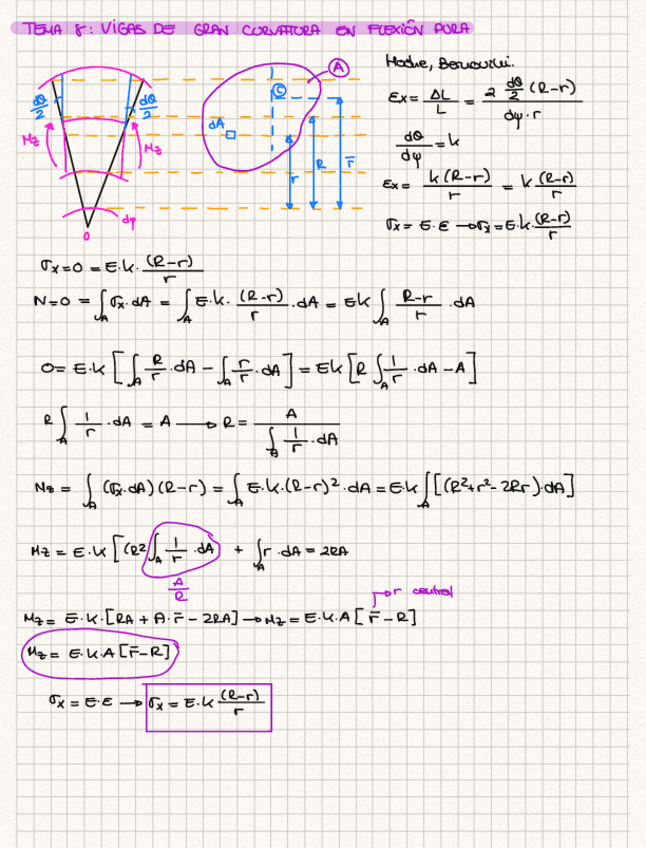 TEMA 8: VIGAS DE GRAN CURVATURA EN FLEXIÓN PURA
Hooke, Bernouilli.
dθ/2
dθ/2
Mz
Mz
dφ
O
A
C
dA
r
R
r̅
εx = ΔL/L = 2 dθ/2 (R-r) / dφ·r
dθ/dφ = k
εx = k(R-r)/r = k (R-r)/r
σx = E·ε → σx = E·k·(R-r)/r
σx = 0 = E·k·(R-r)/r
N=0 = ∫A σx·dA = ∫A E·k·(R-r)/r·dA = Ek ∫A R-r/r·dA
0 = E·k [∫A R/r·dA - ∫A r/r·dA] = Ek [R ∫A 1/r·dA - A]
R ∫A 1/r·dA = A → R = A / ∫A 1/r·dA
Mz = ∫A (σx·dA)(R-r) = ∫A E·k·(R-r)²·dA = E·k ∫A [(R²+r²-2Rr)·dA]
Mz = E·k [(R² ∫A 1/r·dA + ∫A r·dA = 2RA
A/R
r central
Mz = E·k·[RA + A·r̅ - 2RA] → Mz = E·k·A [r̅ - R]
Mz = E·k·A [r̅-R]
σx = E·ε → σx = E·k (R-r)/r